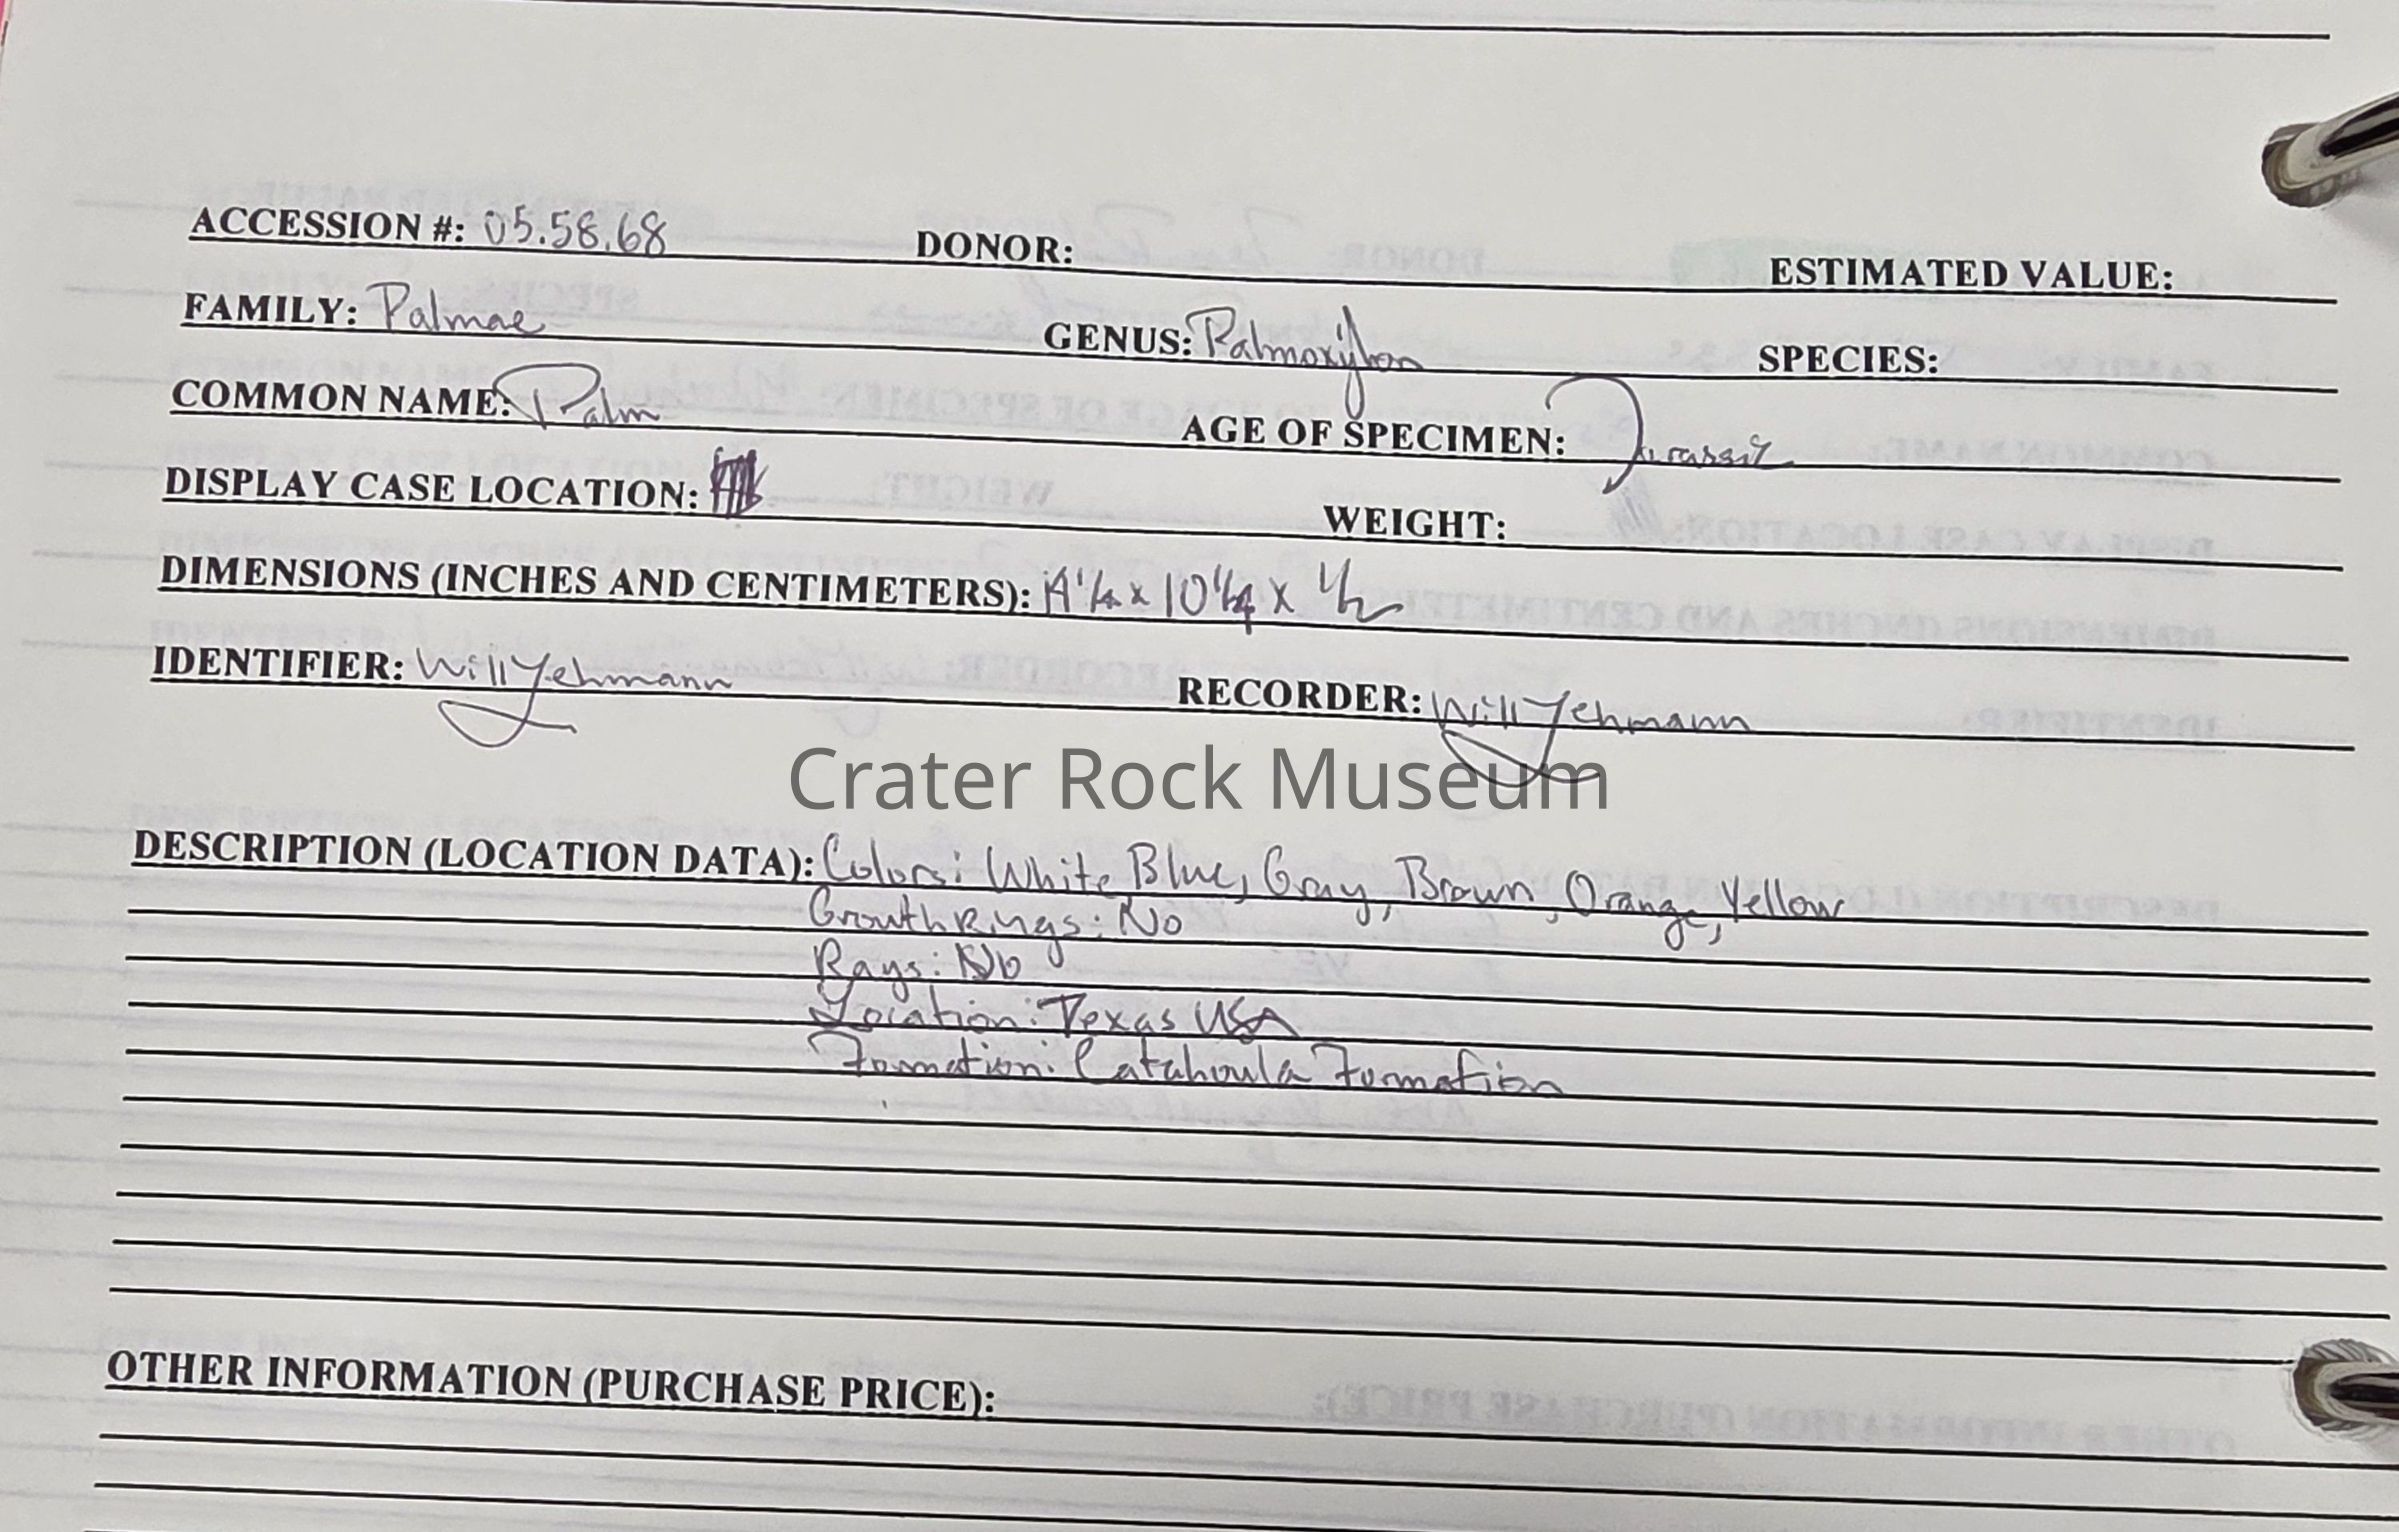 ACCESSION #: 05.58.68 DONOR: ESTIMATED VALUE:
FAMILY: Palmae GENUS: Palmoxylon SPECIES:
COMMON NAME: Palm AGE OF SPECIMEN: Jurassic
DISPLAY CASE LOCATION: WEIGHT:
DIMENSIONS (INCHES AND CENTIMETERS): x 10 1/4 x 1/2
IDENTIFIER: Will Yehmann RECORDER: Will Yehmann
Crater Rock Museum
DESCRIPTION (LOCATION DATA): Colors: White Blue, Gray, Brown, Orange, Yellow
Growth Rings: No
Rays: No
Location: Texas USA
Formation: Catahoula Formation
OTHER INFORMATION (PURCHASE PRICE):